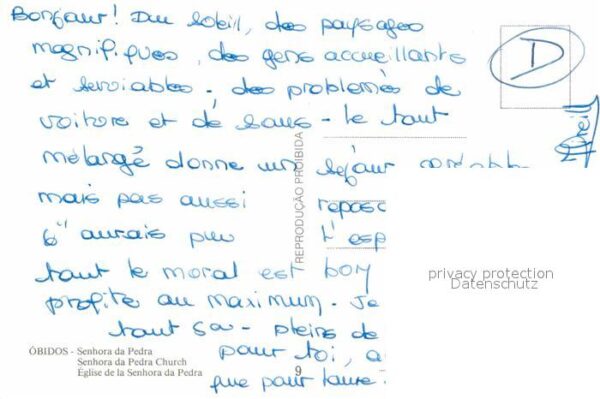 Bonjour! Du soleil, des paysages
magnifiques, des gens accueillants
et serviables. des problèmes de
voiture et de sous - Le tout
mélangé donne un séjour
mais pas aussi repos
6" aurais pu L'esp
tout le moral est bon
profite au maximum. Je
tout ça - pleins de
pour toi, a
que pour Laure.
D
REPRODUÇÃO PROIBIDA
privacy protection
Datenschutz
ÓBIDOS - Senhora da Pedra
Senhora da Pedra Church
Église de la Senhora da Pedra
9